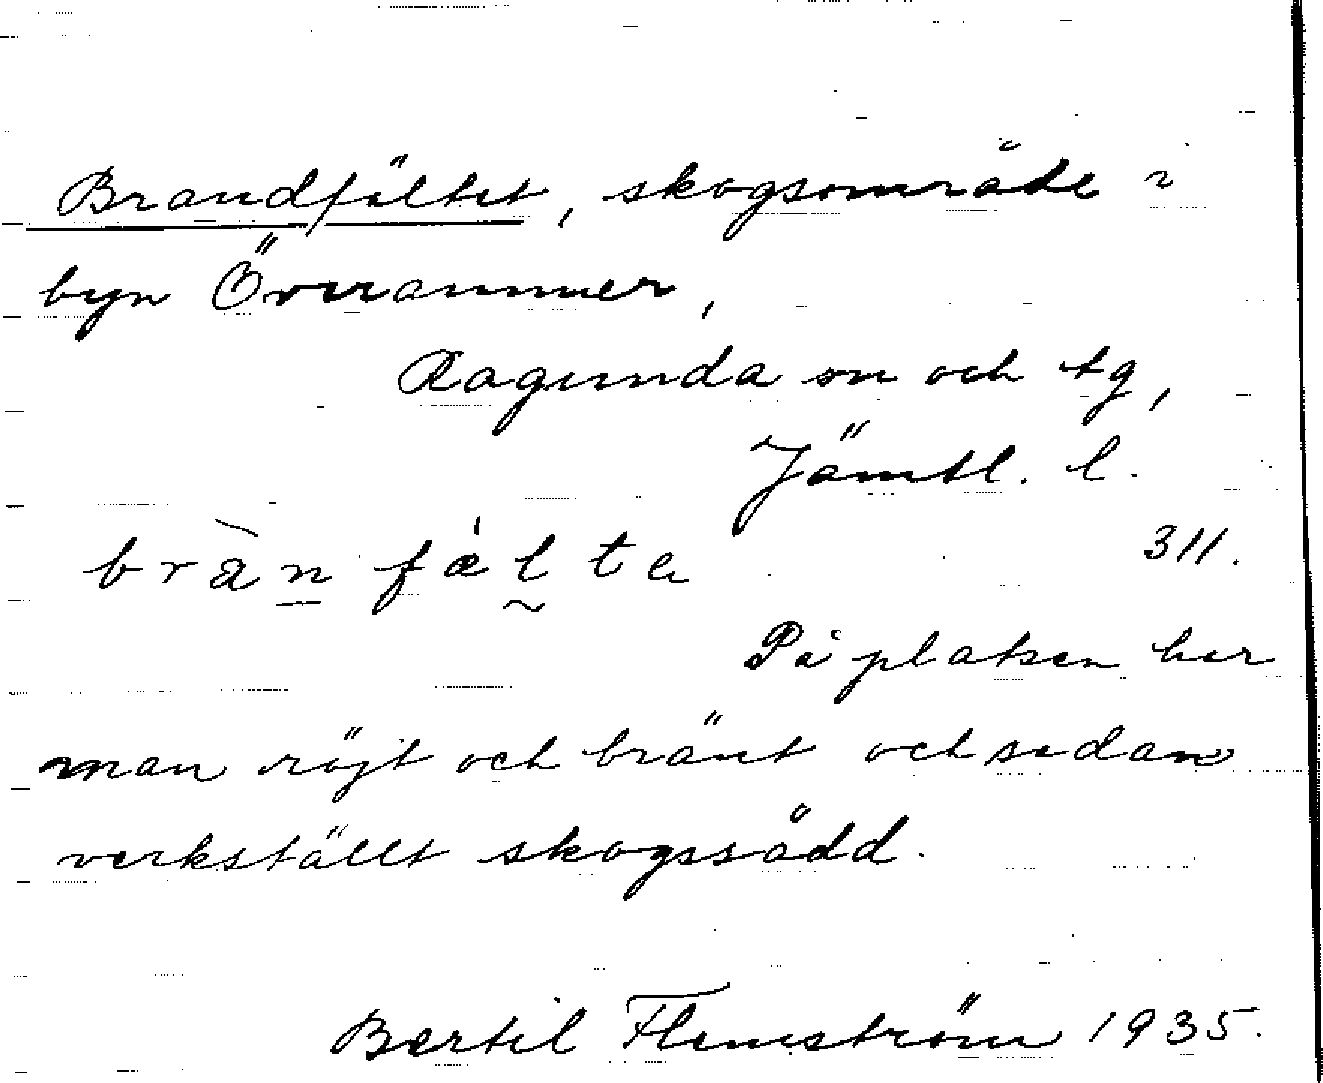 Brandfältet, skogsområde i
byn Överammer,
Ragunda sn och tg,
Jämtl. l.
bràn fǽlta 311.
På platsen har
man röjt och bränt och sedan
verkställt skogssådd.
Bertil Flemström 1935.